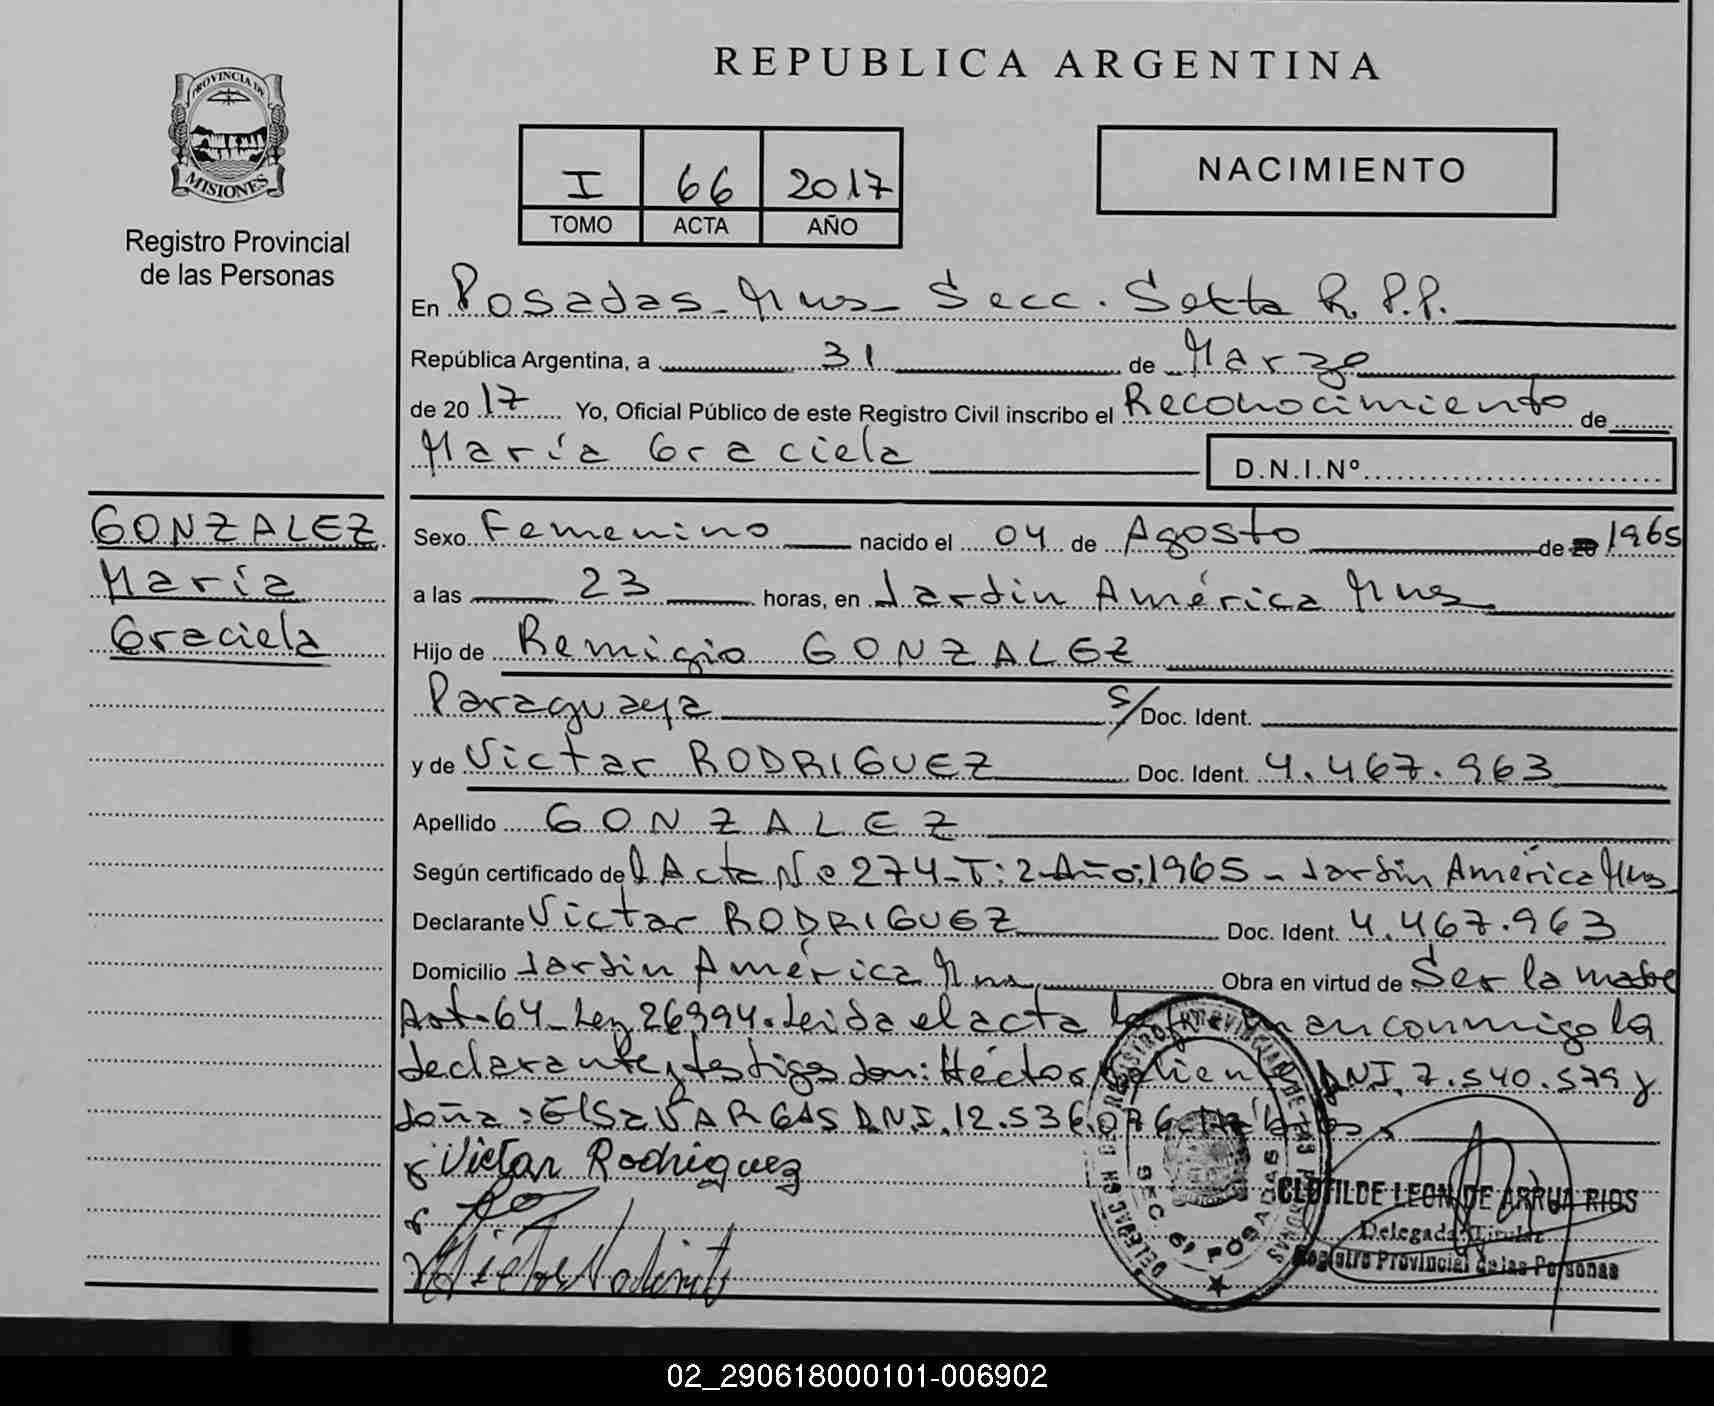 PROVINCIA DE
MISIONES
Registro Provincial
de las Personas
REPUBLICA ARGENTINA
I 66 2017
TOMO ACTA AÑO
NACIMIENTO
En Posadas - Mnes - Secc. Sexta R.P.P.
República Argentina, a 31 de Marzo
de 20 17 Yo, Oficial Público de este Registro Civil inscribo el Reconocimiento de
María Graciela D.N.I.Nº
GONZALEZ
María
Graciela
Sexo Femenino nacido el 04 de Agosto de 1965
a las 23 horas, en Jardin América Mnes
Hijo de Remigio GONZALEZ
Paraguaya S/ Doc. Ident.
y de Victar RODRIGUEZ Doc. Ident. 4.467.963
Apellido GONZALEZ
Según certificado del Acta Nº 274-T:2-Año:1965 - Jardin América Mnes
Declarante Victar RODRIGUEZ Doc. Ident. 4.467.963
Domicilio Jardin América Mnes Obra en virtud de Ser la madre
Art. 64 Ley 26994. Leida el acta la firman conmigo la
declarante y testigos don: Héctor DNI. 7.540.579 y
doña: Elsa VARGAS D.N.I. 12.536.076 Hábiles
Victar Rodriguez
DELEGACION DEL REGISTRO PROVINCIAL DE LAS PERSONAS
SEC. 6ª POSADAS
CLOTILDE LEON DE ARRUA RIOS
Delegada Titular
Registro Provincial de las Personas
02_290618000101-006902